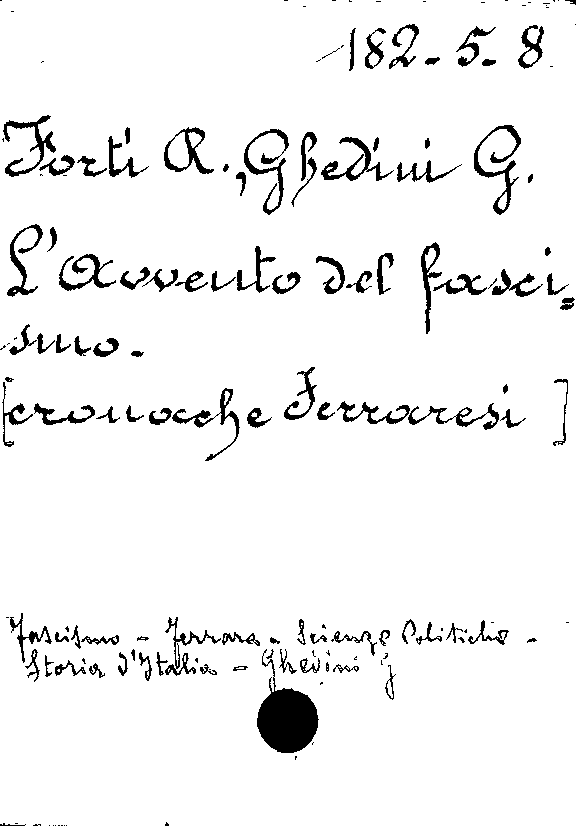 182-5-8
Forti A., Ghedini G.
L'Avvento del fasci=
smo.
[cronache Ferraresi]
Fascismo - Ferrara - Scienze Politiche -
Storia d'Italia - Ghedini G